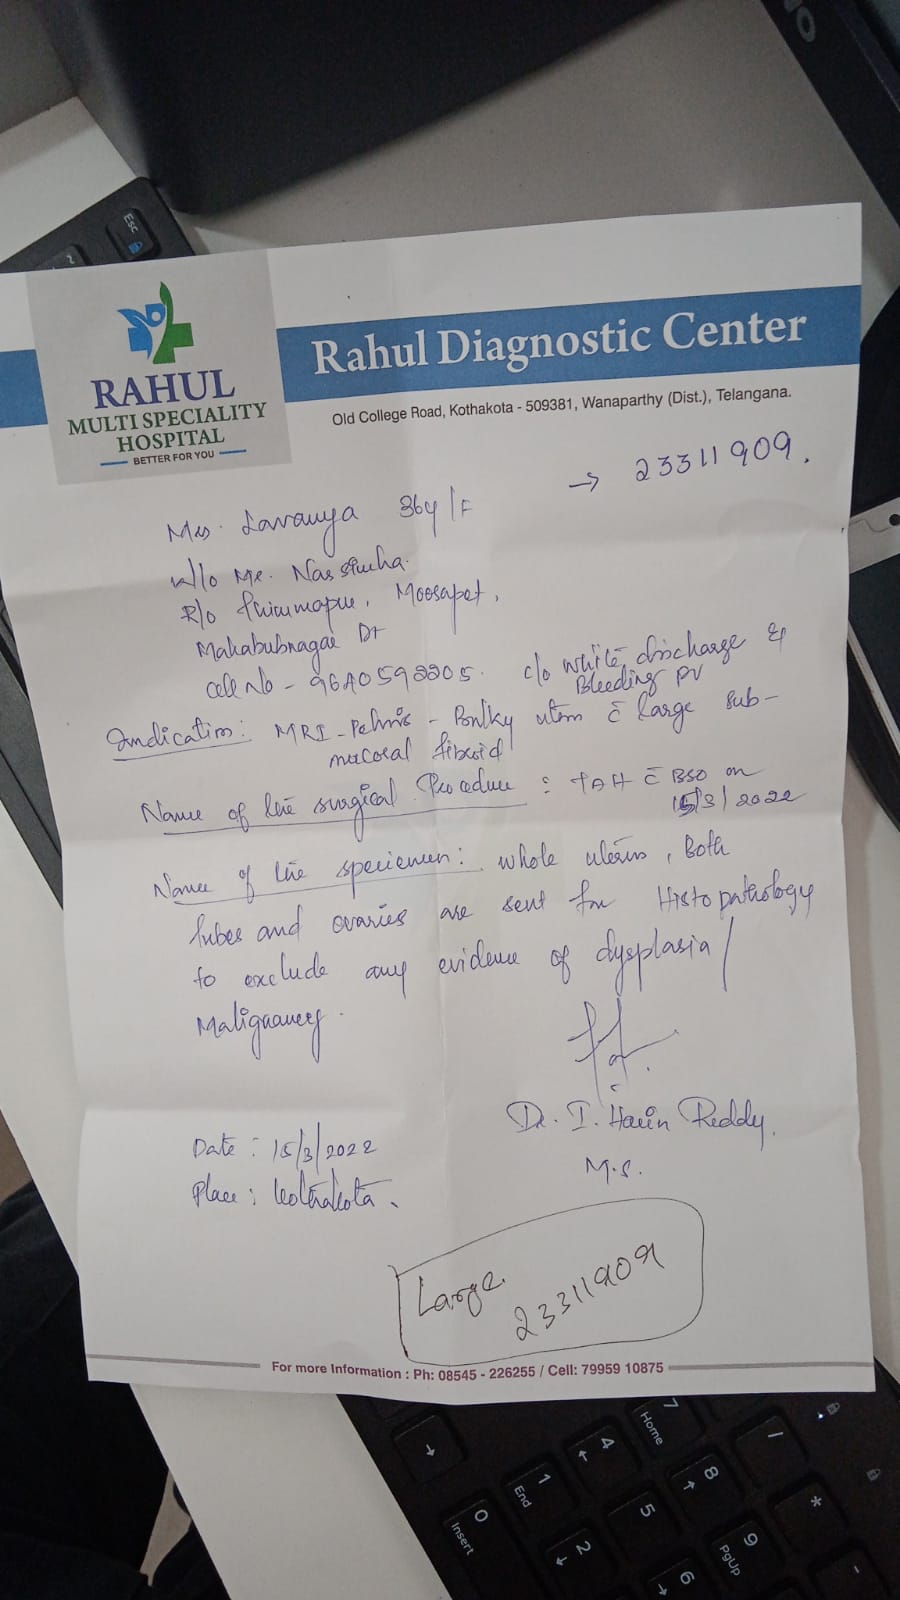 RAHUL
MULTI SPECIALITY
HOSPITAL
BETTER FOR YOU
Rahul Diagnostic Center
Old College Road, Kothakota - 509381, Wanaparthy (Dist.), Telangana.
→ 23311909.
Mrs. Lavanya 36y/F
W/o Mr. Narsimha.
R/o Moosapet,
Mahabubnagar Dt
Cell No - c/o white discharge &
Bleeding PV
Indication: MRI-Pelvis - Bulky uterus c̄ large sub-
mucosal fibroid
Name of the surgical Procedure : TAH c̄ BSO on
15/3/2022
Name of the speciemen: whole uterus, Both
tubes and ovaries are sent for Histopathology
to exclude any evidence of dysplasia/
Malignancy.
Dr. I. Reddy.
M.S.
Date : 15/3/2022
Place : Kothakota.
Large
23311909
For more Information : Ph: 08545 - 226255 / Cell: 79959 10875
Esc
Home
7
8
9
PgUp
4
5
6
1
End
2
0
Insert
/
*
-